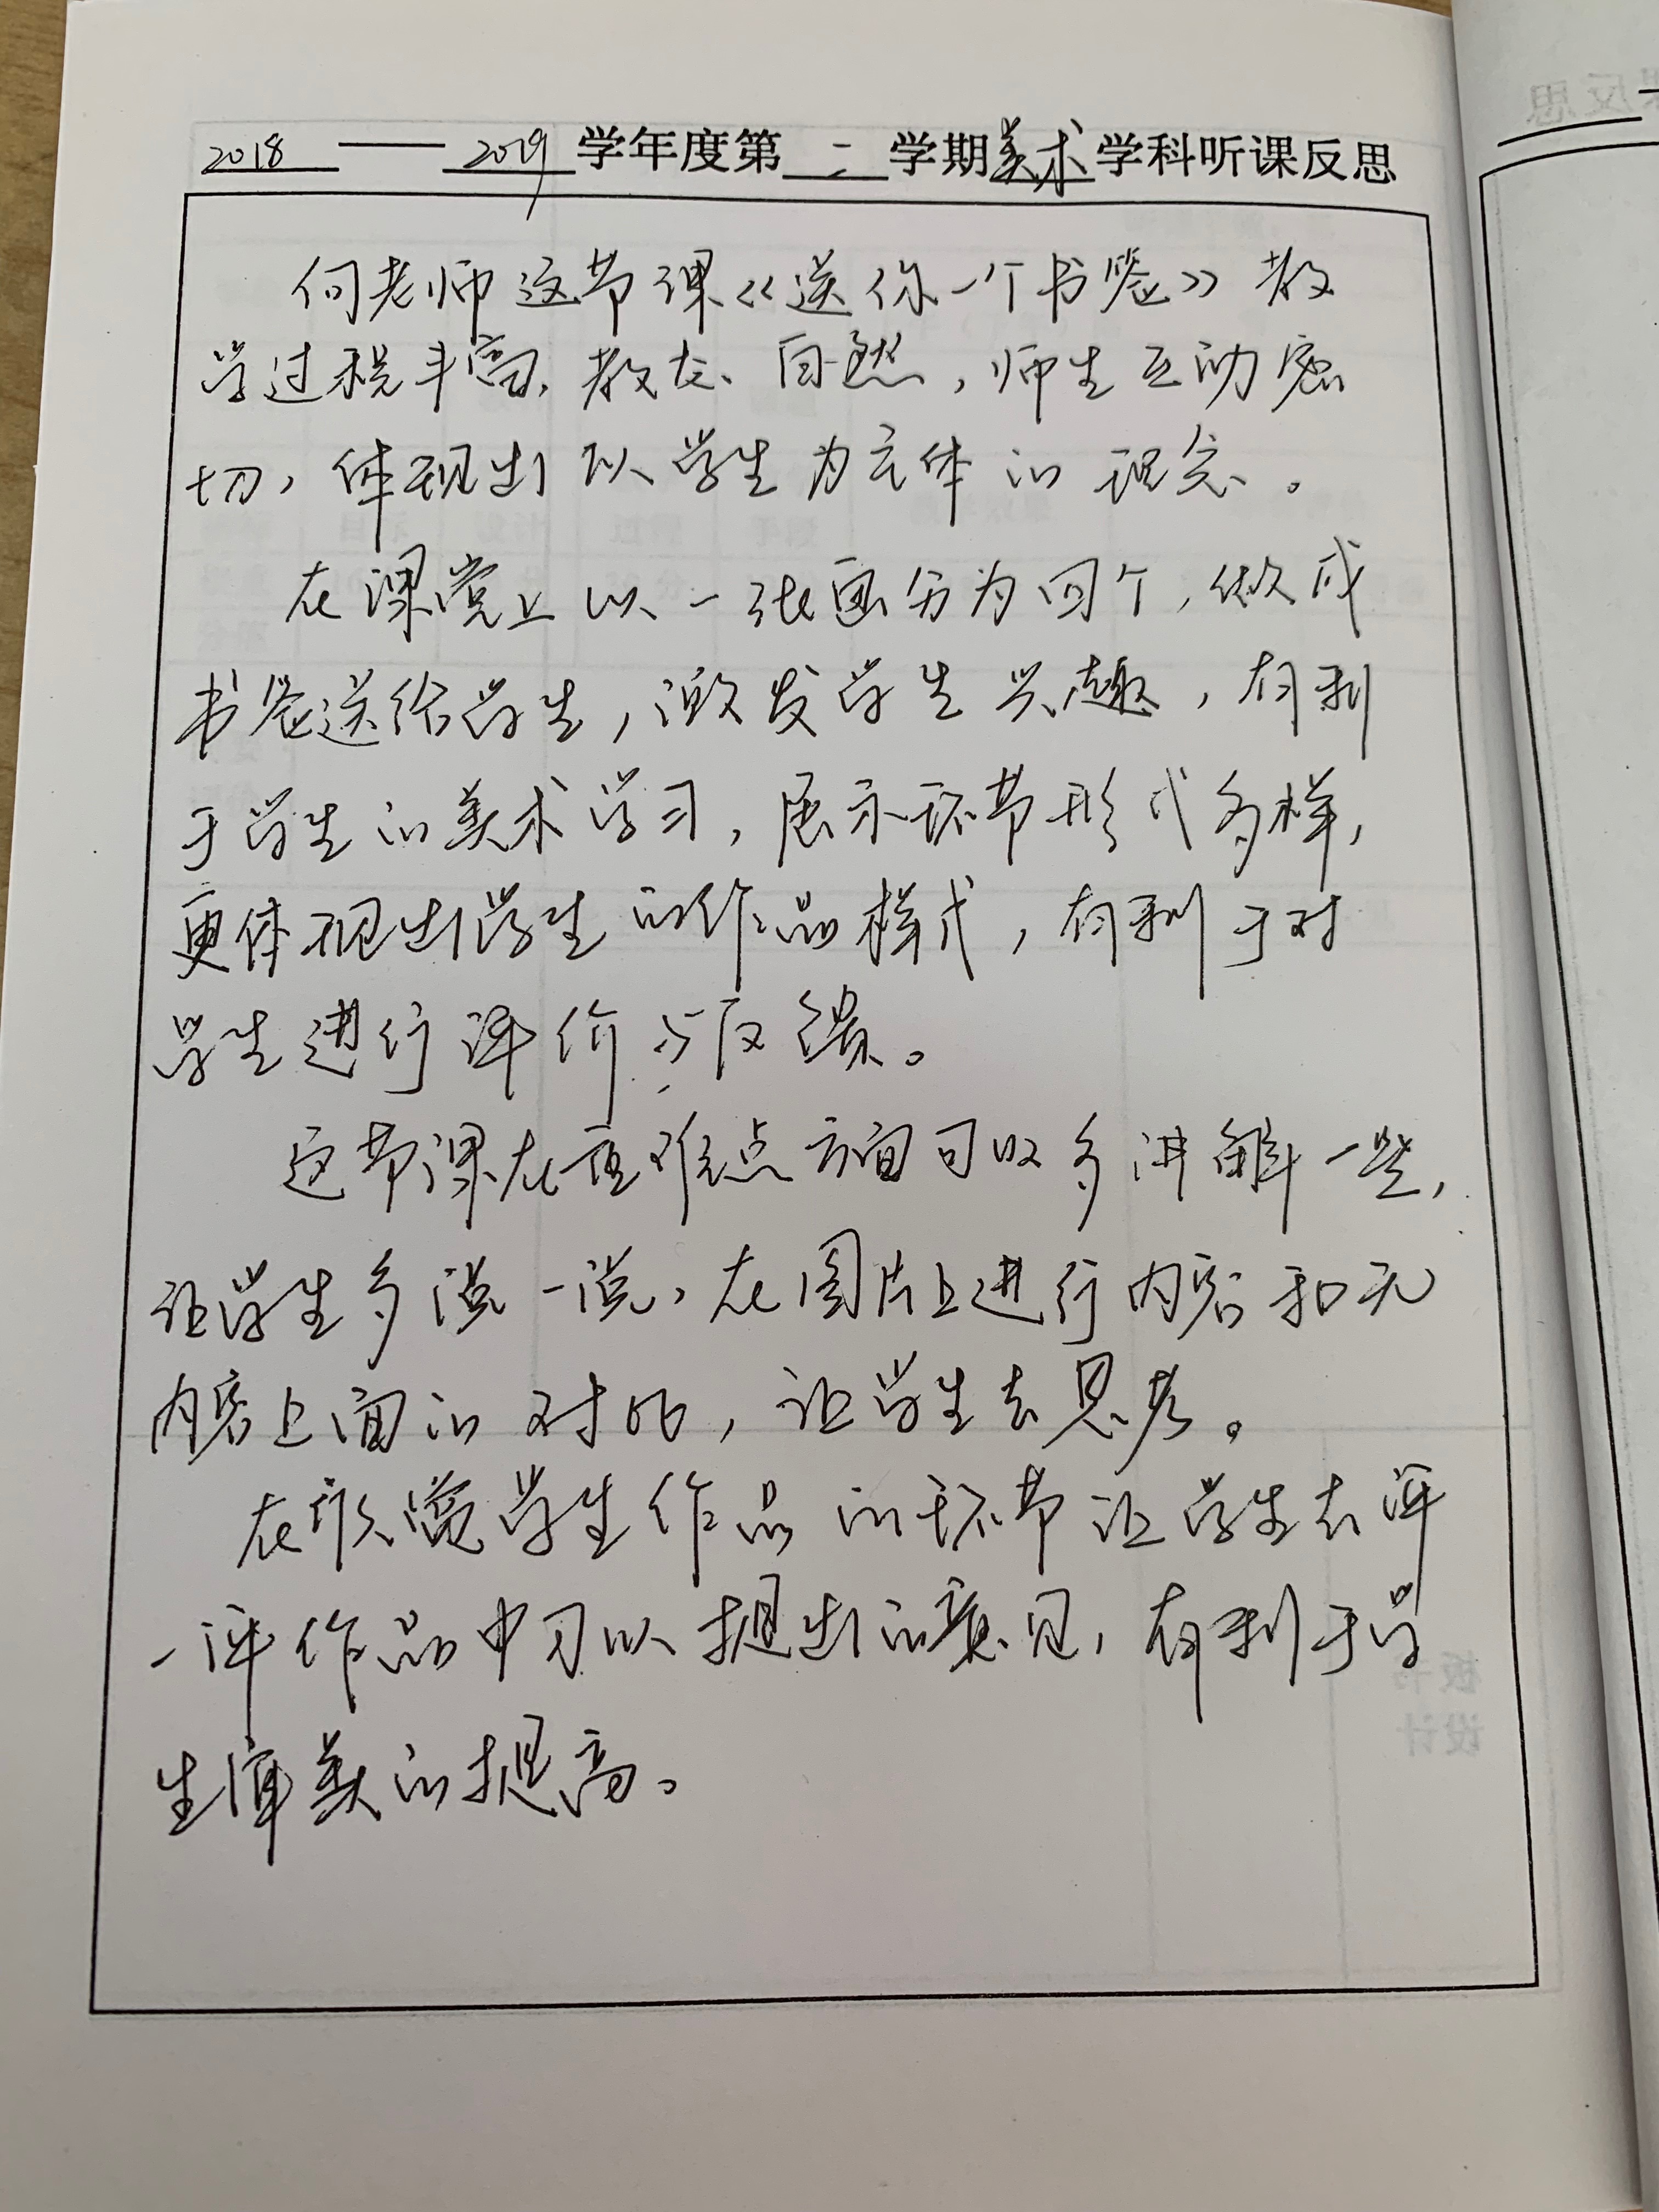 2018——2019学年度第二学期美术学科听课反思
何老师这节课《送你一个书签》教
学过程丰富,教态、自然,师生互动密
切,体现出以学生为主体的理念。
在课堂上以一张画分为四个,做成
书签送给学生,激发学生兴趣,有利
于学生的美术学习,展示环节形式多样,
更体现出学生的作品样式,有利于对
学生进行评价与反馈。
这节课在重难点方面可以多讲解一些,
让学生多说一说,在图片上进行内容和无
内容上面的对比,让学生去思考。
在欣赏学生作品的环节让学生去评
一评作品中可以提出的意见,有利于学
生审美的提高。
课反思
板书
设计